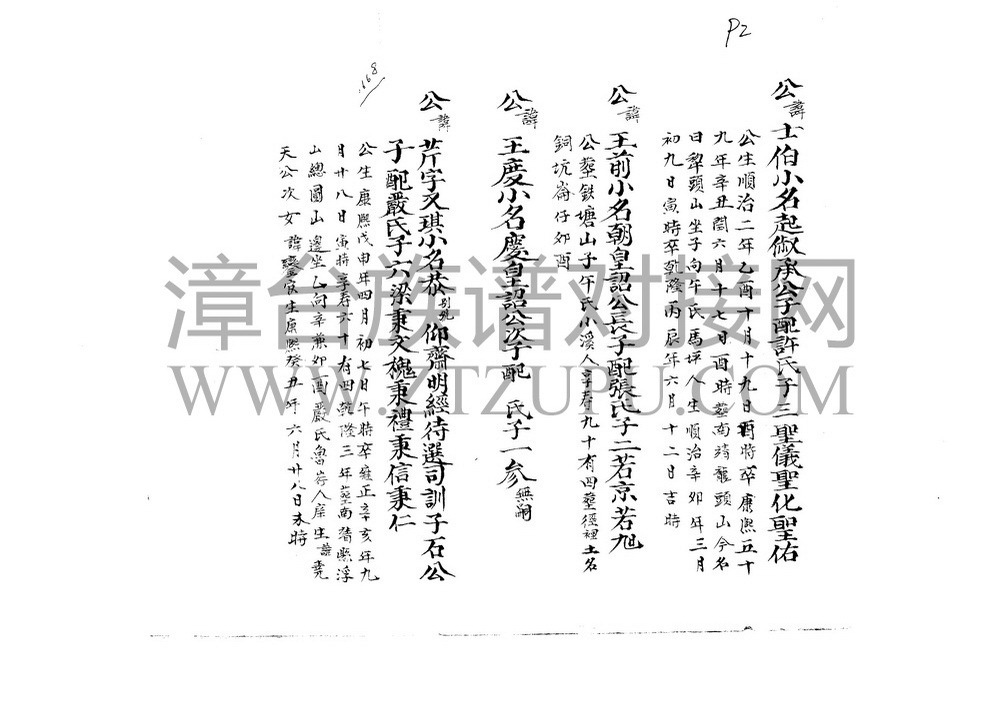 P2
公諱士伯小名起俶承公子配許氏子三聖儀聖化聖佑
公生順治二年乙酉十月十九日酉時卒康熙五十
九年辛丑閏六月十七日酉時葬南靖龍頭山今名
曰犁頭山坐子向午氏馬坪人生順治辛卯年三月
初九日寅時卒乾隆丙辰年六月十二日吉時
公諱王前小名朝皇詔公長子配張氏子二若京若旭
公葬鉄塘山子午氏小溪人享寿九十有四葬徑裡土名
銅坑崙仔卯酉
公諱王慶小名慶皇詔公次子配 氏子一参無嗣
168
公諱芹字又琪小名恭别號仰齋明經待選司訓子石公
子配嚴氏子六梁秉文槐秉禮秉信秉仁
公生康熙戊申年四月初七日午時卒雍正辛亥年九
月廿八日寅時享寿六十有四乾隆三年葬南靖熙浮
山總圓山邊坐乙向辛兼卯酉嚴氏魯岑人庠生諱堯
天公次女諱 官生康熙癸丑年六月廿八日未時
漳台族谱对接网
WWW.ZTZUPU.COM